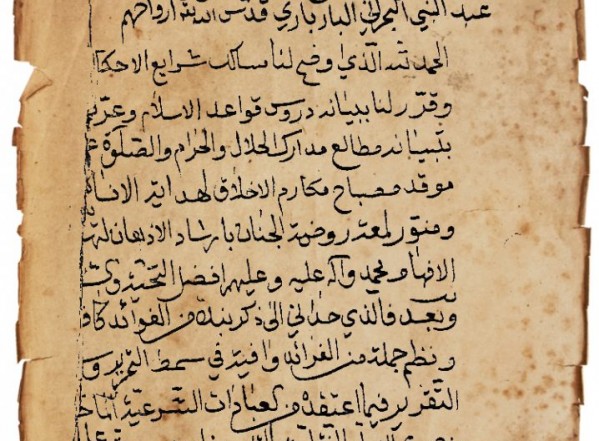 عبد النبي البحراني الباربادي قدس الله ارواحهم
الحمد لله الذي وضح لنا مسالك شرايع الاحكا
وقرر لنا ببيانه دروس قواعد الاسلام وعر
بتبيانه مطالع مدارك الحلال والحرام والصلوة
موقد مصباح مكارم الاخلاق لهداية الانا
ومنور لمعة روضة الجنان بارشاد الاذهان
الافهام محمد وآله عليه وعليهم افضل التحية و
وبعد فالذي حداني الى ذكر نبذة من الفوائد كا
ونظم جملة من الفرائد وافية في سمط التحرير و
التقرير فيما اعتقده من العبادات الشرعية